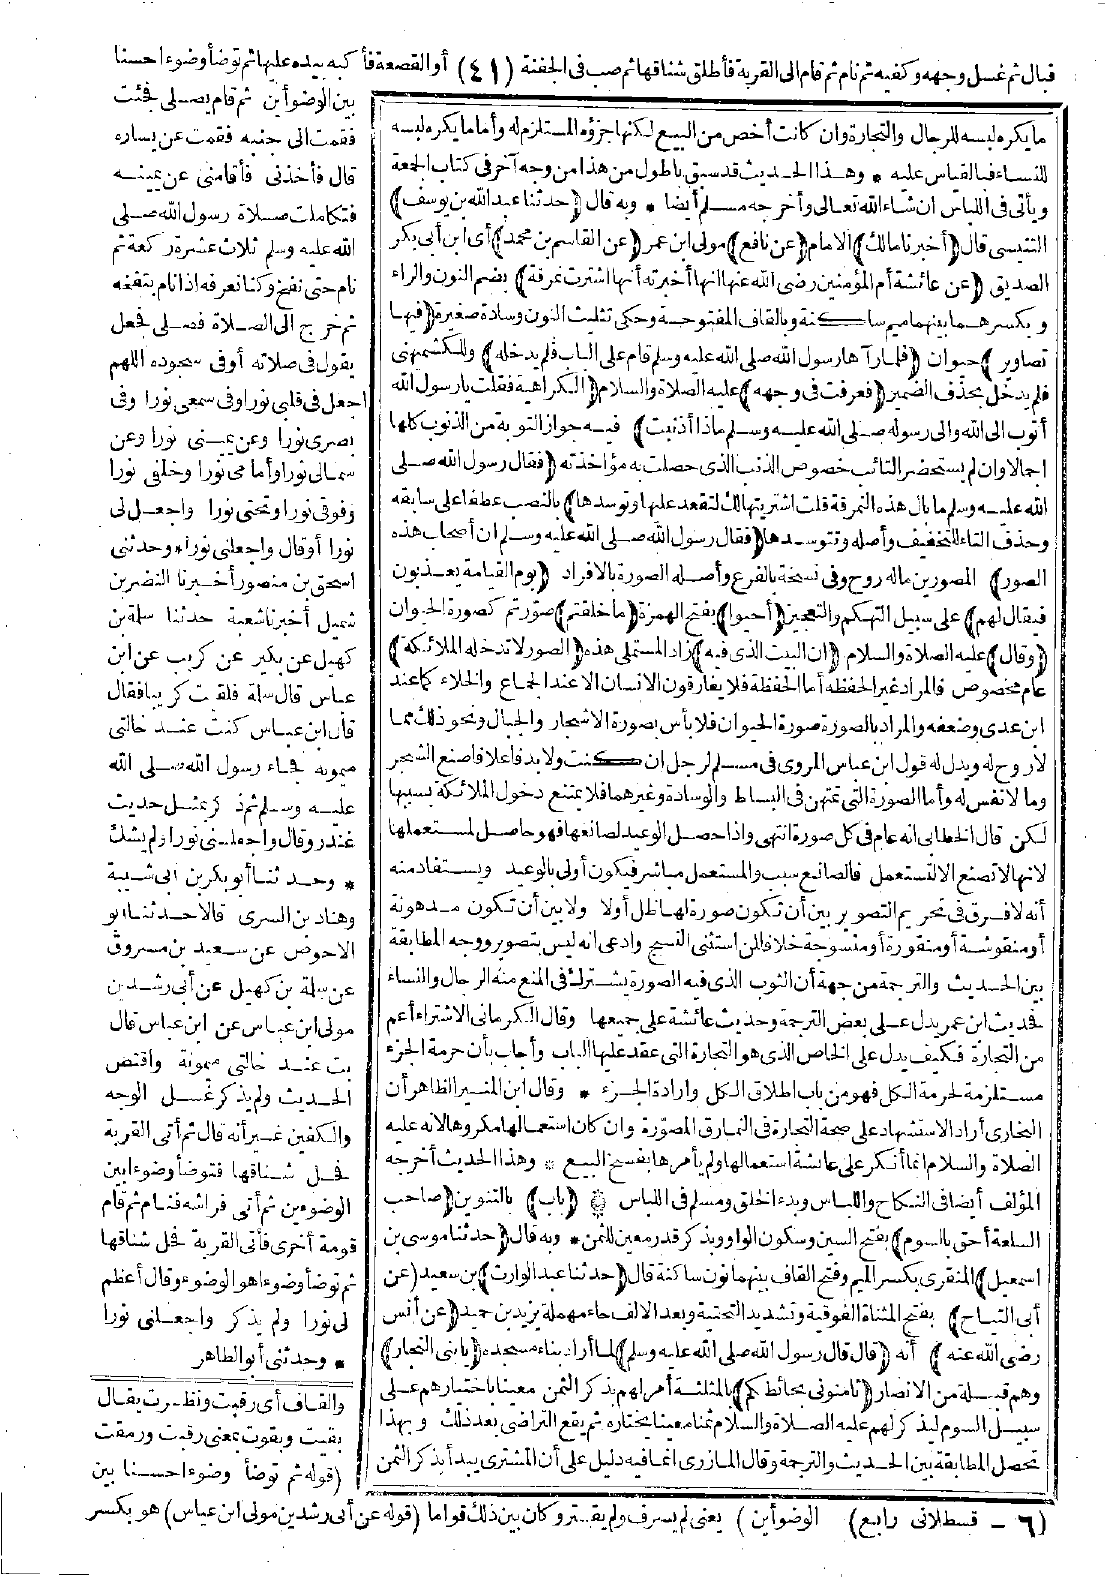 قبال ثم غسل وجهه وكفيه ثم نام ثم قام الى القربة فأطلق شناقها ثم صب فى الجفنة (٤١) أوالقصعة فأ كبه بيده عليها ثم توضأ وضوءا حسنا
ما يكره لبسه للرجال والتجارة وان كانت أخص من البيع لكنها جزؤه المستلزم له وأما ما يكره لبسه
للنساء فبالقياس عليه * وهذا الحديث قد سبق باطول من هذا من وجه آخر فى كتاب الجمعة
ويأتى فى اللباس ان شاء الله تعالى وأخرجه مسلم أيضا * وبه قال (حدثنا عبد الله بن يوسف)
التنيسى قال (أخبرنا مالك) الامام (عن نافع) مولى ابن عمر (عن القاسم بن محمد) أى ابن أبى بكر
الصديق (عن عائشة أم المؤمنين رضى الله عنها انها أخبرته أنها اشترت نمرقة) بضم النون والراء
وبكسرهما بينهما ميم ساكنة وبالقاف المفتوحة وحكى تثليث النون وسادة صغيرة (فيها
تصاوير) حيوان (فلما رآها رسول الله صلى الله عليه وسلم قام على الباب فلم يدخله) وللكشميهنى
فلم يدخل بحذف الضمير (فعرفت فى وجهه) عليه الصلاة والسلام (الكراهية فقلت يا رسول الله
أتوب الى الله والى رسوله صلى الله عليه وسلم ماذا أذنبت) فيه جواز التوبة من الذنوب كلها
اجمالا وان لم يستحضر التائب خصوص الذنب الذى حصلت به مؤاخذته (فقال رسول الله صلى
الله عليه وسلم ما بال هذه النمرقة قلت اشتريتها لك لتقعد عليها وتوسدها) بالنصب عطفا على سابقه
وحذف التاء للتخفيف وأصله وتتوسدها (فقال رسول الله صلى الله عليه وسلم ان أصحاب هذه
الصور) المصورين ماله روح وفى نسخة بالفرع وأصله الصورة بالافراد (يوم القيامة يعذبون
فيقال لهم) على سبيل التهكم والتعجيز (أحيوا) بفتح الهمزة (ما خلقتم) صورتم كصورة الحيوان
(وقال) عليه الصلاة والسلام (ان البيت الذى فيه) زاد المستملى هذه (الصور لا تدخله الملائكة)
عام مخصوص فالمراد غير الحفظه أما الحفظة فلا يفارقون الانسان الا عند الجماع والخلاء كما عند
ابن عدى وضعفه والمراد بالصورة صورة الحيوان فلا بأس بصورة الاشجار والجبال ونحو ذلك مما
لا روح له ويدل له قول ابن عباس المروى فى مسلم لرجل ان كنت ولا بد فاعلا فاصنع الشجر
وما لا نفس له وأما الصورة التى تمتهن فى البساط والوسادة وغيرهما فلا يمتنع دخول الملائكة بسببها
لكن قال الخطابى انه عام فى كل صورة انتهى واذا حصل الوعيد لصانعها فهو حاصل لمستعملها
لانها لا تصنع الا لتستعمل فالصانع سبب والمستعمل مباشر فيكون أولى بالوعيد ويستفاد منه
أنه لا فرق فى تحريم التصوير بين أن تكون صورة لها ظل أولا ولا بين أن تكون مدهونة
أو منقوشة أو منقورة أو منسوجة خلافا لمن استثنى النسج وادعى انه ليس بتصوير ووجه المطابقة
بين الحديث والترجمة من جهة أن الثوب الذى فيه الصورة يشترك فى المنع منه الرجال والنساء
فحديث ابن عمر يدل على بعض الترجمة وحديث عائشة على جميعها وقال الكرمانى الاشتراء أعم
من التجارة فكيف يدل على الخاص الذى هو التجارة التى عقد عليها الباب وأجاب بأن حرمة الجزء
مستلزمة لحرمة الكل فهو من باب اطلاق الكل وارادة الجزء * وقال ابن المنير الظاهر أن
البخارى أراد الاستشهاد على صحة التجارة فى النمارق المصورة وان كان استعمالها مكروها لانه عليه
الصلاة والسلام انما أنكر على عائشة استعمالها ولم يأمرها بفسخ البيع * وهذا الحديث أخرجه
المؤلف أيضا فى النكاح واللباس وبدء الخلق ومسلم فى اللباس (باب) بالتنوين (صاحب
السلعة أحق بالسوم) بفتح السين وسكون الواو وبذكر قدر معين للثمن * وبه قال (حدثنا موسى بن
اسمعيل) المنقرى بكسر الميم وفتح القاف بينهما نون ساكنة قال (حدثنا عبد الوارث) بن سعيد (عن
أبى التياح) بفتح المثناة الفوقية وتشديد التحتية وبعد الالف حاء مهملة يزيد بن حميد (عن أنس
رضى الله عنه) أنه (قال قال رسول الله صلى الله عليه وسلم) لما أراد بناء مسجده (يا بنى النجار)
وهم قبيلة من الانصار (ثامنونى بحائطكم) بالمثلثة أمر لهم بذكر الثمن معينا باختيارهم على
سبيل السوم ليذكر لهم عليه الصلاة والسلام ثمنا معينا يختاره ثم يقع التراضى بعد ذلك وبهذا
تحصل المطابقة بين الحديث والترجمة وقال المازرى انما فيه دليل على أن المشترى يبدأ بذكر الثمن
بين الوضوأين ثم قام يصلى فجئت
فقمت الى جنبه فقمت عن يساره
قال فأخذنى فأقامنى عن يمينه
فتكاملت صلاة رسول الله صلى
الله عليه وسلم ثلاث عشرة ركعة ثم
نام حتى نفخ وكنا نعرفه اذا نام بنفخه
ثم خرج الى الصلاة فصلى فجعل
يقول فى صلاته أوفى سجوده اللهم
اجعل فى قلبى نورا وفى سمعى نورا وفى
بصرى نورا وعن يمينى نورا وعن
شمالى نورا وأمامى نورا وخلفى نورا
وفوقى نورا وتحتى نورا واجعل لى
نورا أوقال واجعلنى نورا * وحدثنى
اسحق بن منصور أخبرنا النضر بن
شميل أخبرنا شعبة حدثنا سلمة بن
كهيل عن بكير عن كريب عن ابن
عباس قال سلمة فلقيت كريبا فقال
قال ابن عباس كنت عند خالتى
ميمونة فجاء رسول الله صلى الله
عليه وسلم ثم ذكر بمثل حديث
غندر وقال واجعلنى نورا ولم يشك
* وحدثنا أبو بكر بن ابى شيبة
وهناد بن السرى قالا حدثنا ابو
الاحوص عن سعيد بن مسروق
عن سلمة بن كهيل عن أبى رشدين
مولى ابن عباس عن ابن عباس قال
بت عند خالتى ميمونة واقتص
الحديث ولم يذكر غسل الوجه
والكفين غير أنه قال ثم أتى القربة
فحل شناقها فتوضأ وضوءا بين
الوضوءين ثم أتى فراشه فنام ثم قام
قومة أخرى فأتى القربة فحل شناقها
ثم توضأ وضوءا هو الوضوء وقال أعظم
لى نورا ولم يذكر واجعلنى نورا
* وحدثنى أبو الطاهر
والقاف أى رقبت ونظرت يقال
بقيت وبقوت بمعنى رقبت ورمقت
(قوله ثم توضأ وضوءا حسنا بين
الوضوأين) يعنى لم يسرف ولم يقتر وكان بين ذلك قواما (قوله عن أبى رشدين مولى ابن عباس) هو بكسر
(٦ - قسطلانى رابع)